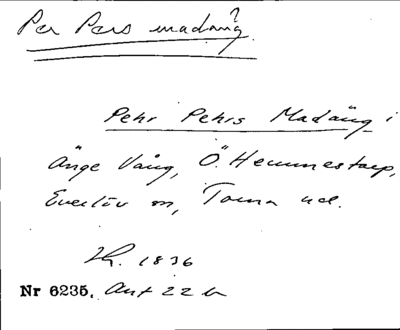 Per Pers madäng?
Pehr Pehrs Madäng i
Änge Vång, Ö. Hemmestorp,
Everlöv sn, Torna hd.
1836
Nr 6235. Ant 22 b